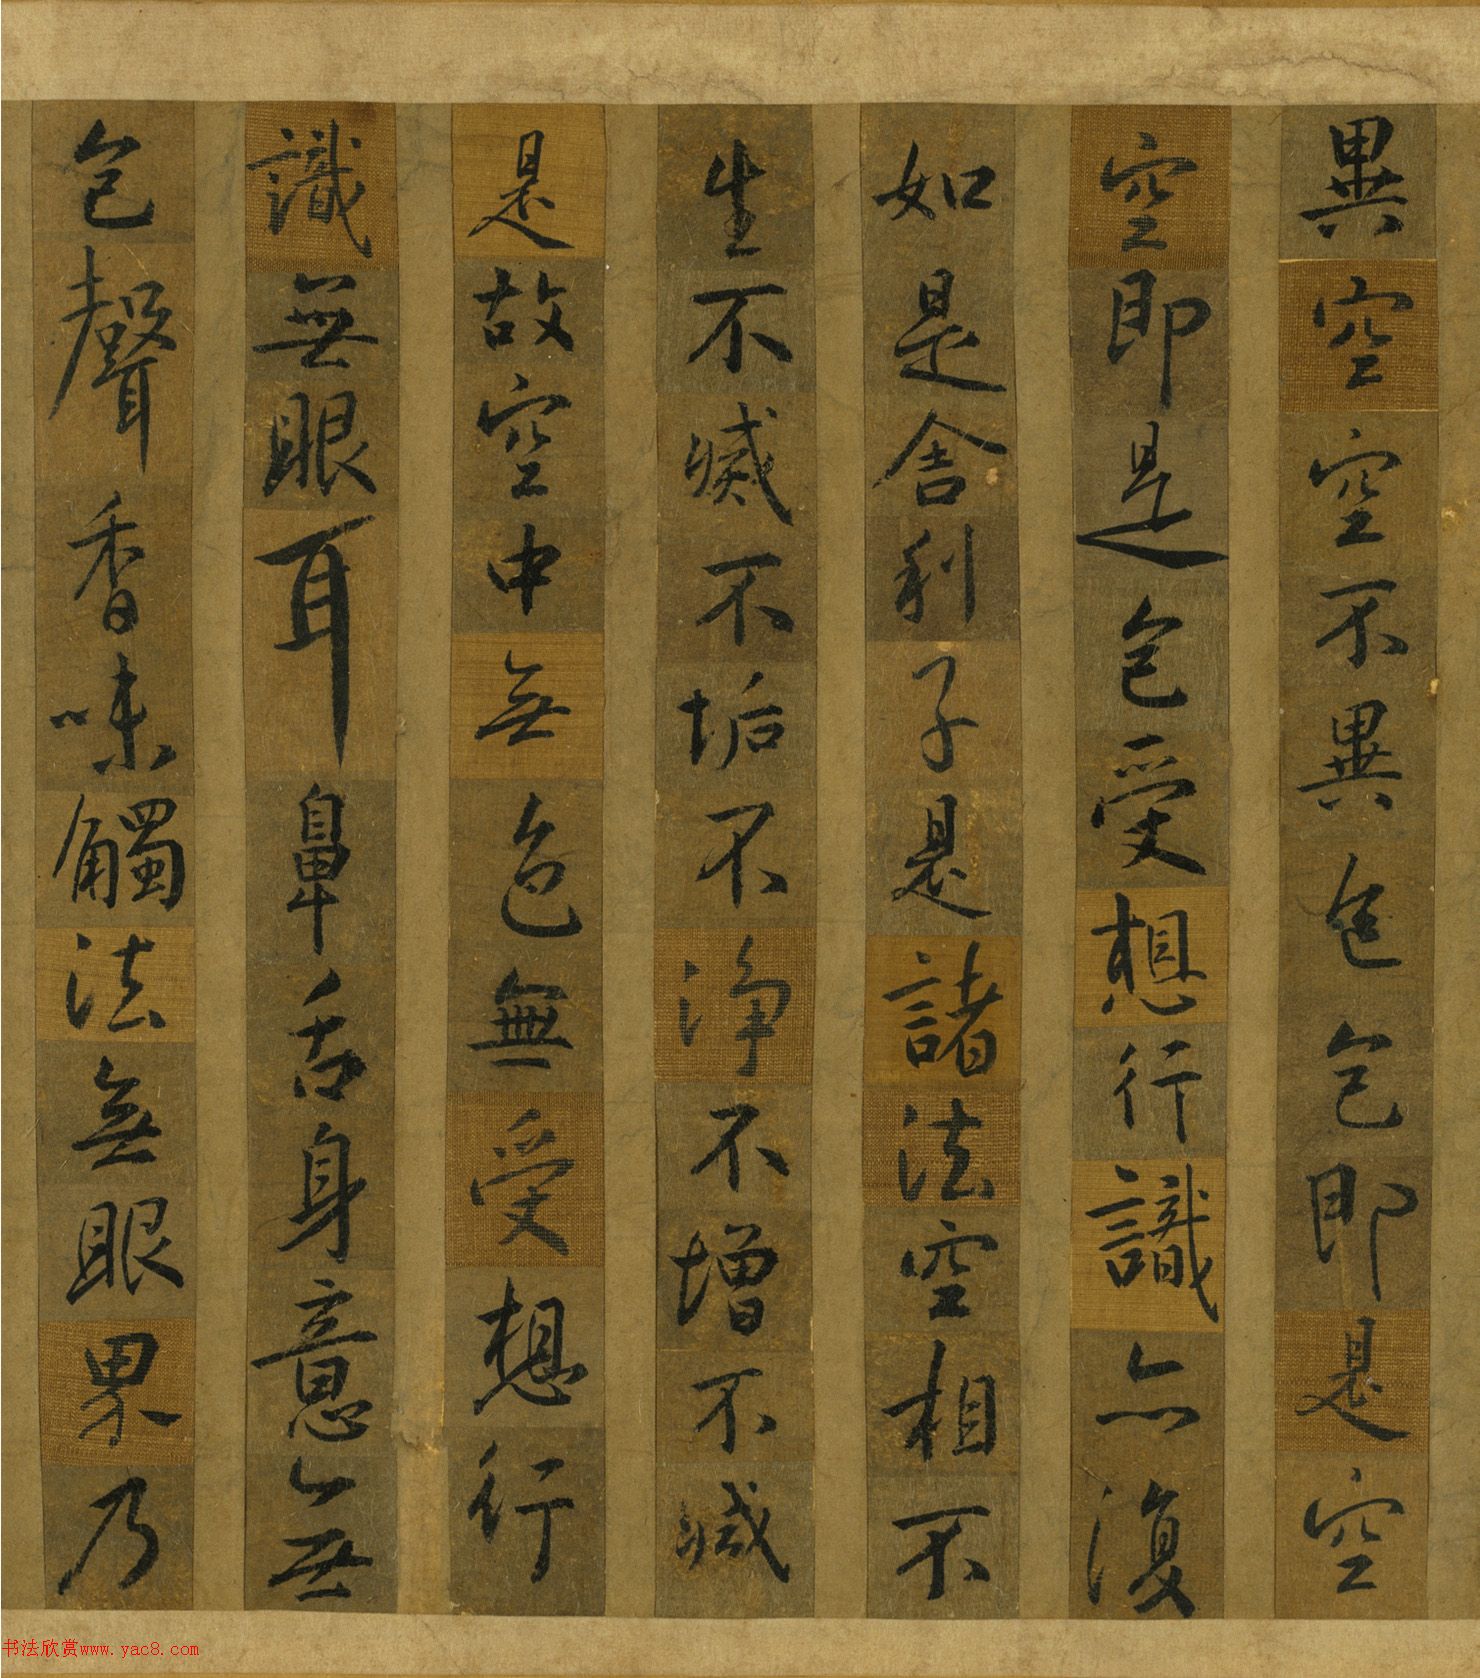 異空空不異色色即是空
空即是色受想行識亦復
如是舍利子是諸法空相不
生不滅不垢不淨不增不減
是故空中無色無受想行
識無眼耳鼻舌身意無
色聲香味觸法無眼界乃
书法欣赏www.yac8.com